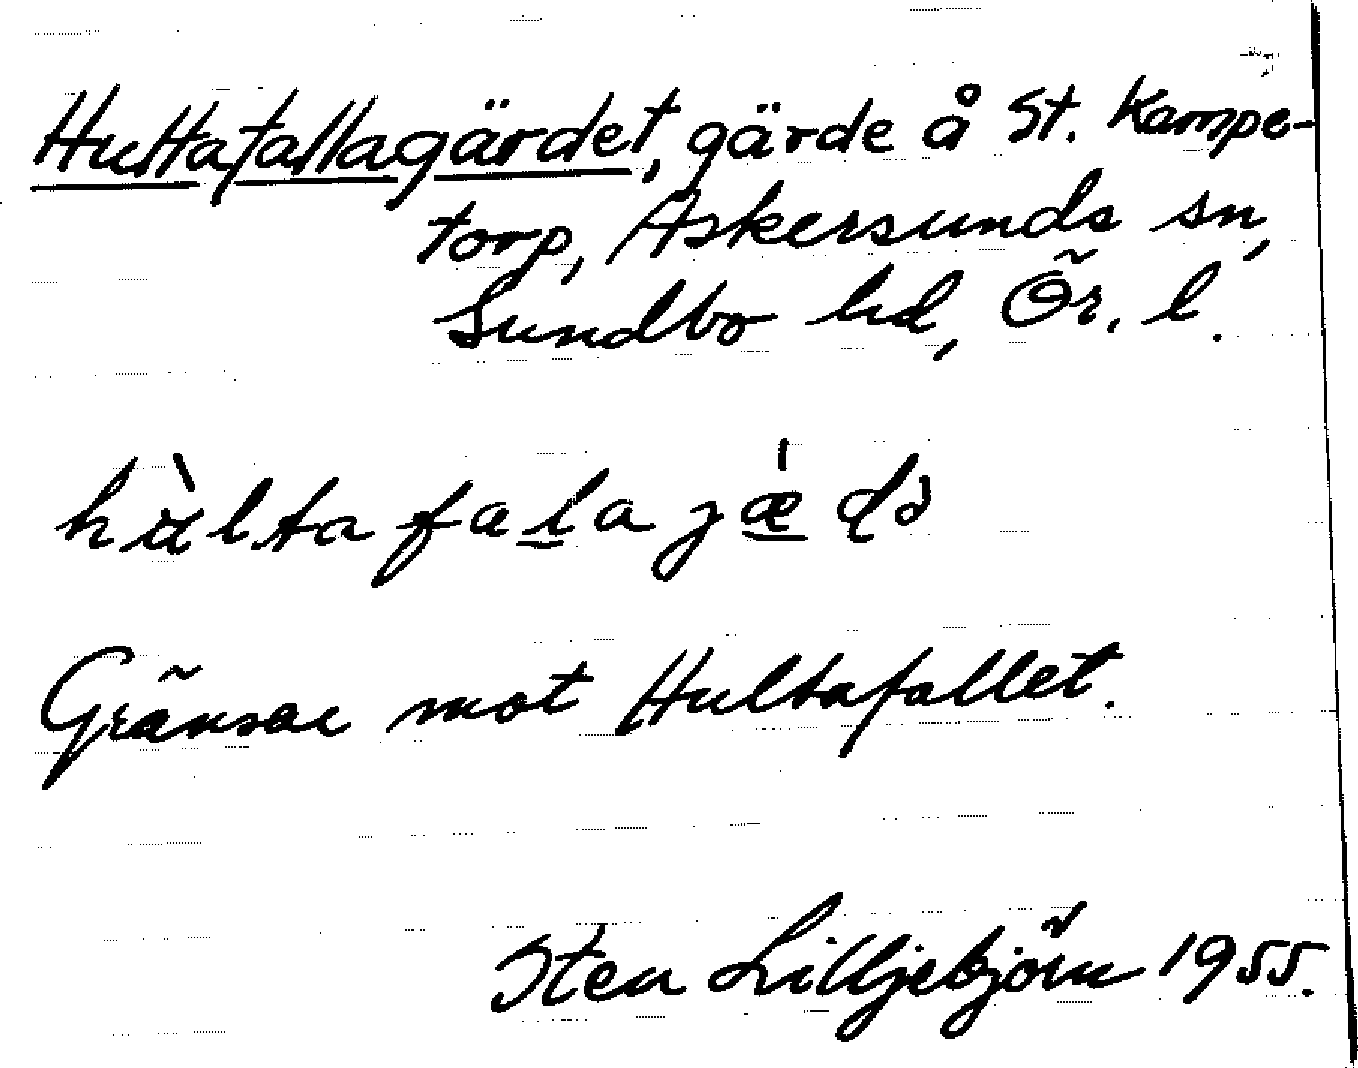 Hultafallagärdet, gärde å St. Kampe-
torp, Askersunds sn,
Sundbo hd, Ör. l.
hùltafalagǽɖə
Gränsar mot Hultafallet.
Sten Lilljebjörn 1955.